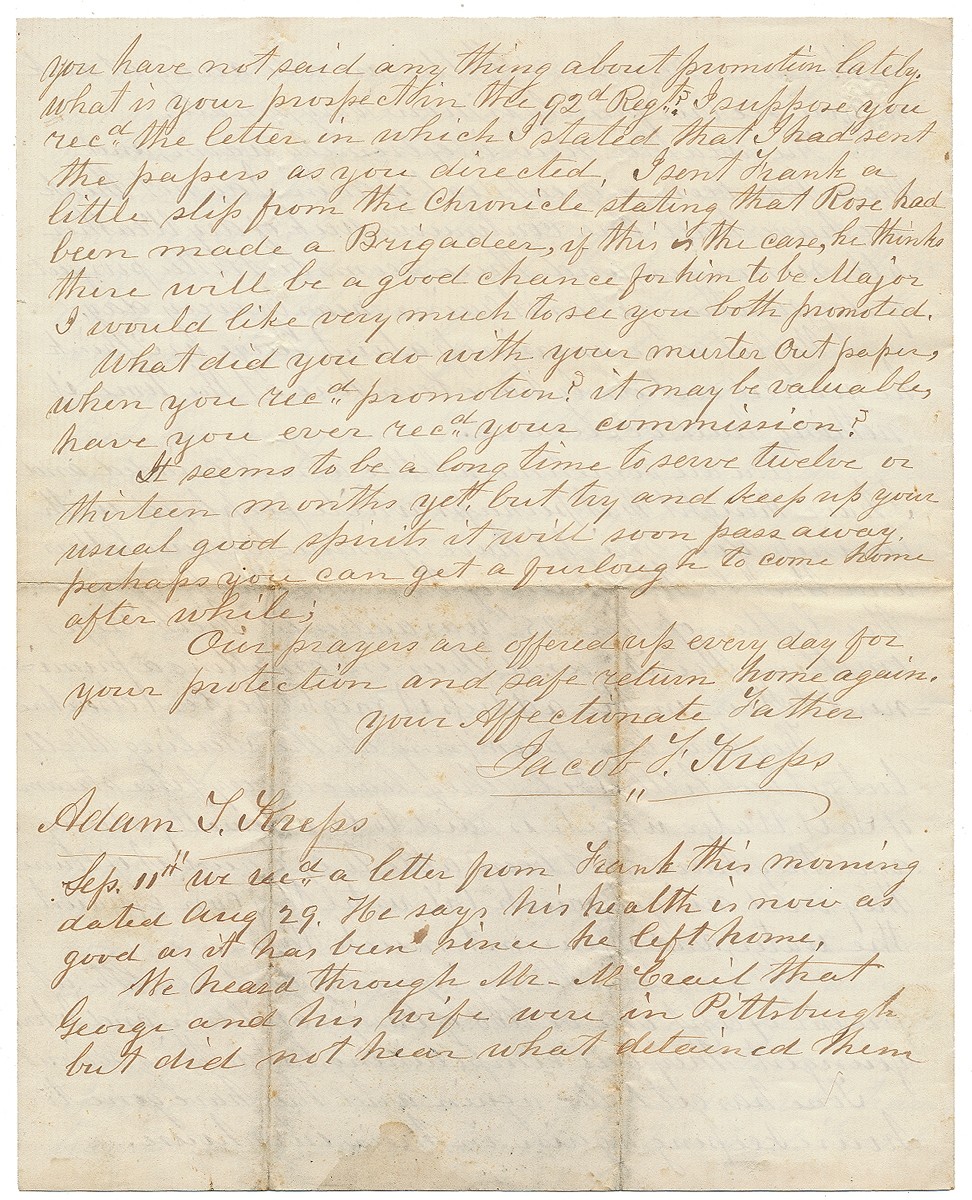 you have not said any thing about promotion lately.
what is your prospect in the 92d Regt.? I suppose you
recd the letter in which I stated that I had sent
the papers as you directed, I sent Frank a
little slip from the Chronicle stating that Rose had
been made a Brigadeer, if this is the case, he thinks
there will be a good chance for him to be Major
I would like very much to see you both promoted.
What did you do with your muster out paper,
when you recd promotion? it may be valuable,
have you ever recd your commission?
It seems to be a long time to serve twelve or
thirteen months yet, but try and keep up your
usual good spirits it will soon pass away.
perhaps you can get a furlough to come home
after while;
Our prayers are offered up every day for
your protection and safe return home again.
your Affectionate Father
Jacob F. Kreps
Adam T. Kreps
Sep. 11th we recd a letter from Frank this morning
dated Aug 29. He says his health is now as
good as it has been since he left home,
We heard through Mr. McCrail that
George and his wife were in Pittsburgh
but did not hear what detained them